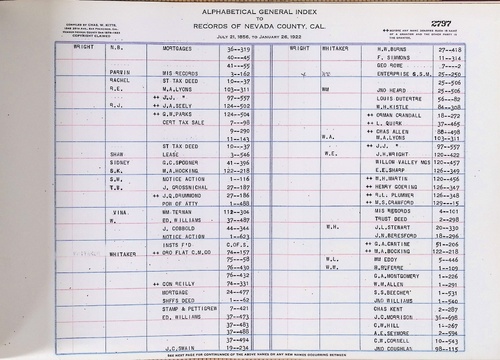 ALPHABETICAL GENERAL INDEX
TO
RECORDS OF NEVADA COUNTY, CAL.
JULY 21, 1856, TO JANUARY 26, 1922
2797
COPYRIGHT CLAIMED
WRIGHT N.B. MORTGAGES 36--319 WRIGHT WHITAKER H.W.BURNS 27--418
40---45 F. SIMMONS 11--314
41---55 GEO ROWE
PARWIN MIS RECORDS 3--162 ENTERPRISE G.S.M. 25--250
RACHEL ST TAX DEED 10---37 25--506
R.E. M.A.LYONS 103--311 WM JNO HEARD 25--506
++ J.J. " 97--557 LOUIS DUTERTRE 56---82
R.J. ++ J.A.SEELY 124--502 W.H.KISTLE 84--308
++ G.W.PARKS 124--504 ++ ORMAN CRANDALL 18--272
CERT TAX SALE 7---98 ++ L. QUIRK 37--465
9--290 ++ CHAS ALLEN 88--498
11--143 W.A. M.A.LYONS 103--311
ST TAX DEED 10---37 ++ J.J. " 97--557
SHAW LEASE 3--546 W.E. J.H.WRIGHT 120--422
SIDNEY G.C.SPOONER 41--396 WILLOW VALLEY MGS 120--457
S.K. M.A.HOCKING 122--218 E.E.SHARP 126--349
S.W. NOTICE ACTION 1--116 ++ R.H.MARTIN 120--456
T.B. J. GROSSNICHAL 27--187 ++ HENRY GOERING 126--347
++ J.Q.DRUMMOND 27--186 ++ R.L. PLUMMER 126--348
POW OF ATTY 1--488 ++ M.S.CRAWFORD 129---15
VINA WM TERNAN 112--304 MIS RECORDS 4--101
W. ED. WILLIAMS 37--487 TRUST DEED 2--298
J. COBBOLD 44--344 W.H. J.L.STEWART 20--330
NOTICE ACTION 1--623 J.N.BERESFORD 18--296
INSTS F'D C.OF.S. ++ G.A.CANTINE 51--206
WHITAKER ++ ORO FLAT C.M.CO 74--157 ++ M.A.BOCKING 122--218
75---58 W.L. WM EDDY 5--446
76--430 W.M. 1--109
76--432 G.A.MONTGOMERY 1--226
++ CON REILLY 74--331 W.H.ALLEN 1--291
MORTGAGE 24--477 S.S.BEECHER 1--531
SHFFS DEED 1---62 JNO WILLIAMS 1--540
STAMP & PETTIGREW 7--421 CHAS KENT 2--287
ED. WILLIAMS 37--473 J.C.MORRISON 36--698
37--483 C.W.HILL 1--267
37--488 A.E.SEYMORE 2--594
37--494 C.W.CORNELL 10--543
J.C.SWAIN 19--234 JNO DOUGLAS 98--115
SEE NEXT PAGE FOR CONTINUANCE OF THE ABOVE NAMES OR ANY NEW NAMES OCCURRING BETWEEN